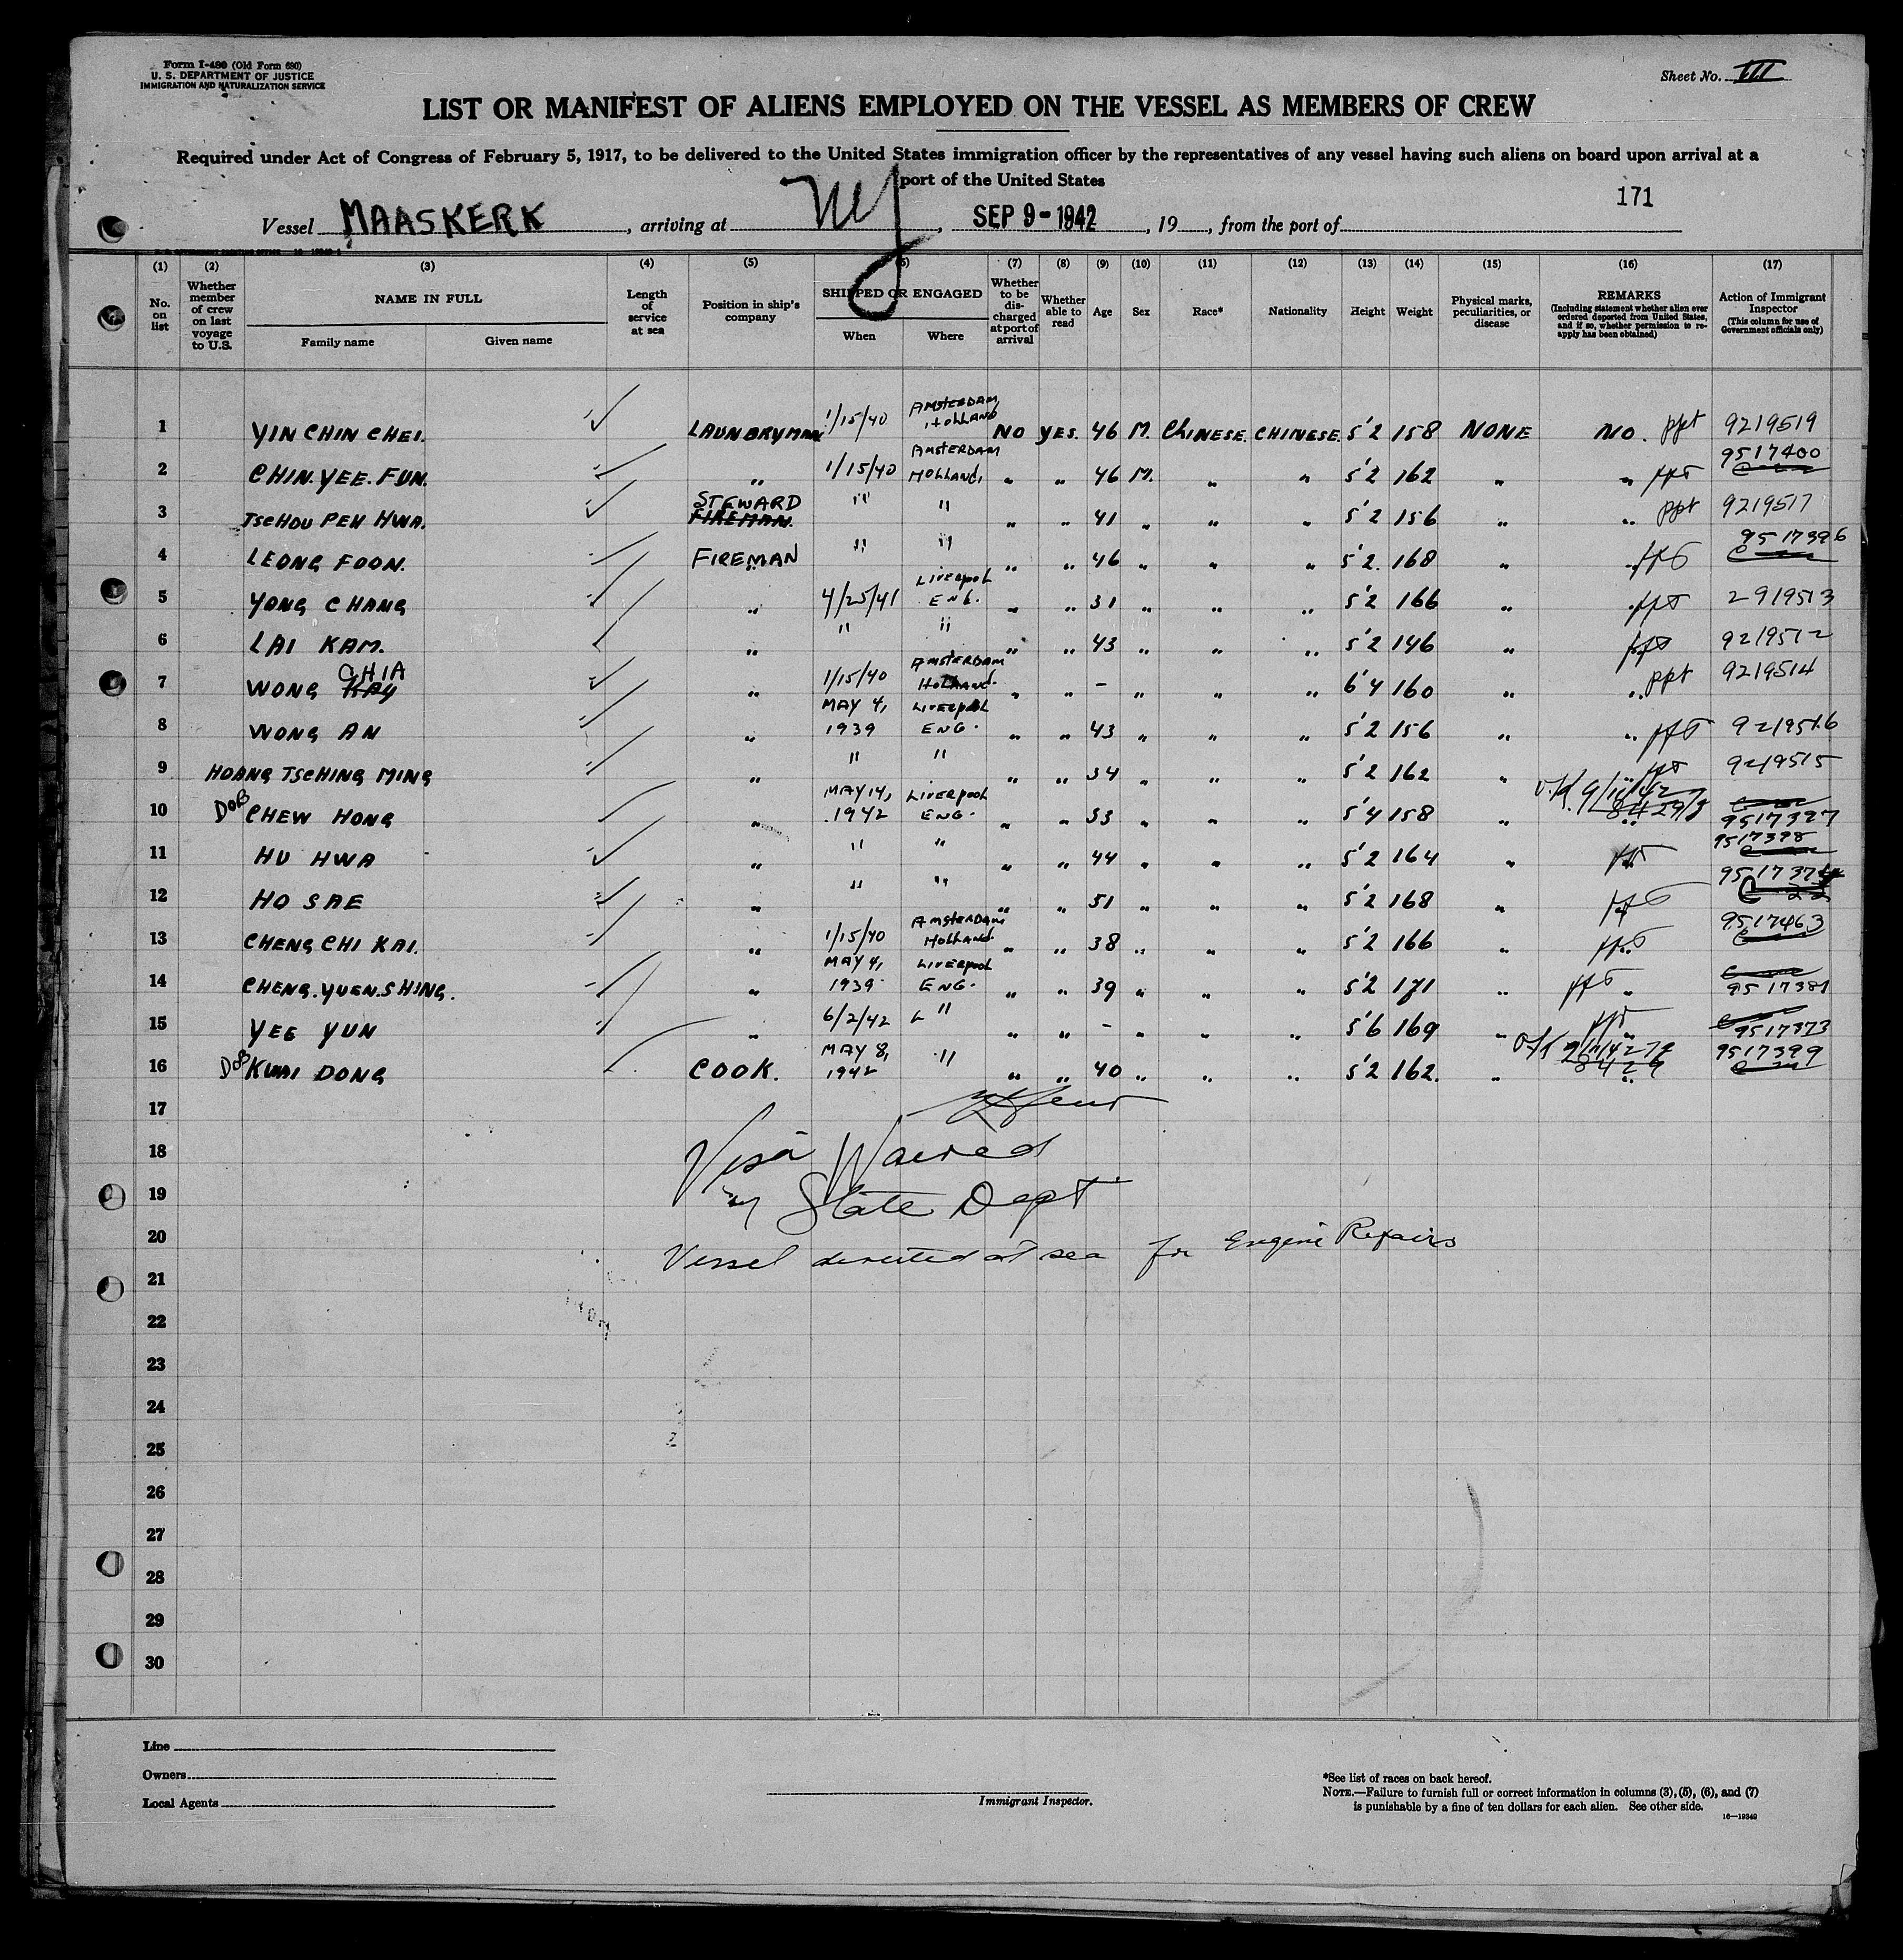 Form I-480 (Old Form 680)
U. S. DEPARTMENT OF JUSTICE
IMMIGRATION AND NATURALIZATION SERVICE
Sheet No. III
LIST OR MANIFEST OF ALIENS EMPLOYED ON THE VESSEL AS MEMBERS OF CREW
Required under Act of Congress of February 5, 1917, to be delivered to the United States immigration officer by the representatives of any vessel having such aliens on board upon arrival at a
port of the United States
171
Vessel MAASKERK, arriving at NY, SEP 9-1942, 19, from the port of
(1) (2) (3) (4) (5) (6) (7) (8) (9) (10) (11) (12) (13) (14) (15) (16) (17)
No. on list
Whether member of crew on last voyage to U.S.
NAME IN FULL
Family name Given name
Length of service at sea
Position in ship's company
SHIPPED OR ENGAGED
When Where
Whether to be discharged at port of arrival
Whether able to read
Age
Sex
Race*
Nationality
Height
Weight
Physical marks, peculiarities, or disease
REMARKS
(Including statement whether alien ever ordered deported from United States, and if so, whether permission to reapply has been obtained)
Action of Immigrant Inspector
(This column for use of Government officials only)
1 YIN CHIN CHEI. LAUNDRYMAN 1/15/40 AMSTERDAM, HOLLAND NO YES. 46 M. CHINESE. CHINESE. 5'2 158 NONE NO. ppt 9219519
2 CHIN. YEE. FUN. " 1/15/40 AMSTERDAM HOLLAND, " " 46 M. " " 5'2 162 " " ppt 9517400
3 TSCHOU PEH HWA. STEWARD FIREMAN. " " " " 41 " " " 5'2 156 " " ppt 9219517
4 LEONG FOON. FIREMAN " " " " 46 " " " 5'2. 168 " " ppt 9517396
5 YONG CHANG " 4/25/41 Liverpool ENG. " " 31 " " " 5'2 166 " " ppt 2919513
6 LAI KAM. " " " " " 43 " " " 5'2 146 " " ppt 9219512
7 WONG KAY CHIA " 1/15/40 AMSTERDAM HOLLAND. " " - " " " 6'4 160 " " ppt 9219514
8 WONG AN " MAY 4, 1939 LIVERPOOL ENG. " " 43 " " " 5'2 156 " " ppt 9219516
9 HOANG TSCHING MING " " " " " 34 " " " 5'2 162 " " ppt 9219515
10 DOB CHEW HONG " MAY 14, 1942 LIVERPOOL ENG. " " 33 " " " 5'4 158 " 9517397
11 HU HWA " " " " " 44 " " " 5'2 164 " " ppt 9517398
12 HO SAE " " " " " 51 " " " 5'2 168 " " ppt
13 CHENG CHI KAI. " 1/15/40 AMSTERDAM HOLLAND. " " 38 " " " 5'2 166 " ppt 9517463
14 CHENG. YUEN. SHING. " MAY 4, 1939. LIVERPOOL ENG. " " 39 " " " 5'2 171 " ppt " 9517381
15 YEE YUN " 6/2/42 " " " - " " " 5'6 169 " ppt " 9517373
16 DOB KWAI DONG COOK. MAY 8, 1942 " " " 40 " " " 5'2 162. " 9517399
17
18 Visa Waived
19 by State Dept.
20 Vessel diverted at sea for Engine Repairs
21
22
23
24
25
26
27
28
29
30
Line
Owners
Local Agents
Immigrant Inspector.
*See list of races on back hereof.
NOTE.—Failure to furnish full or correct information in columns (3), (5), (6), and (7)
is punishable by a fine of ten dollars for each alien. See other side.
16—19349